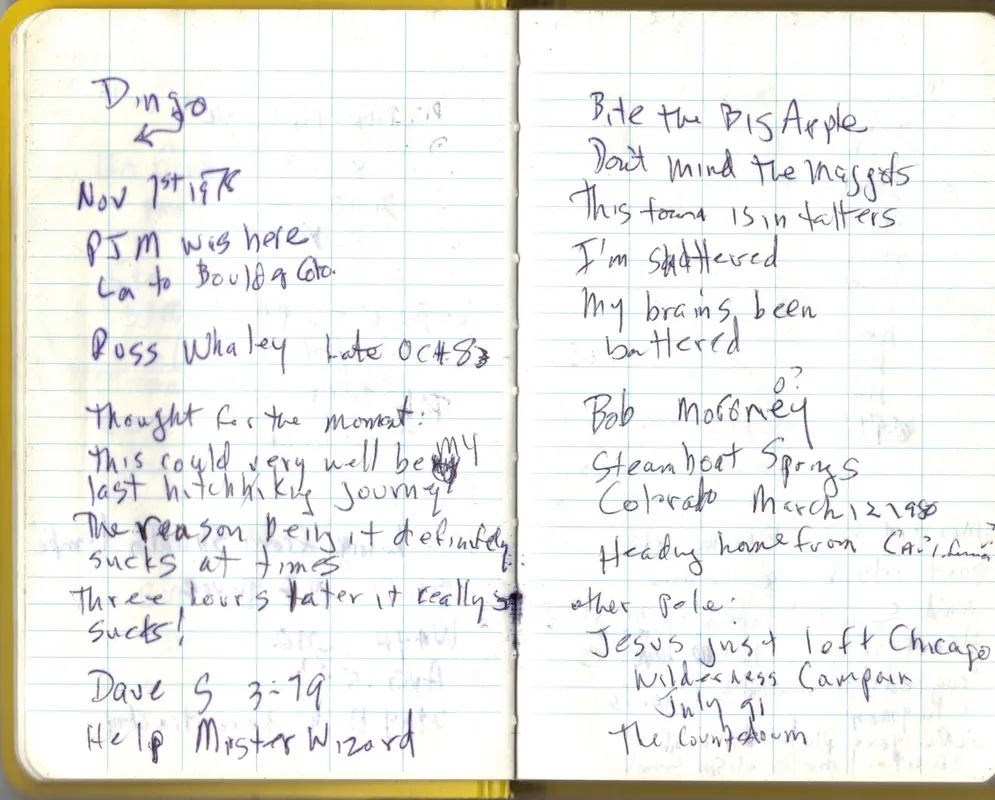 Dingo
Nov 1st 1978
PJM was here
La to Boulder Colo.
Ross Whaley Late Oct 83
Thought for the moment:
This could very well be my
last hitchhiking journey
The reason being it definitely
sucks at times
Three hours later it really
sucks!
Dave S 3-79
Help Mister Wizard
Bite the Big Apple
Don't mind the Maggots
This town is in tatters
I'm shattered
My brains been
battered
o?
Bob Moroney
Steamboat Springs
Colorado March 12 1980
Heading home from
other pole:
Jesus just left Chicago
Wilderness Campain
July 91
The Countdown